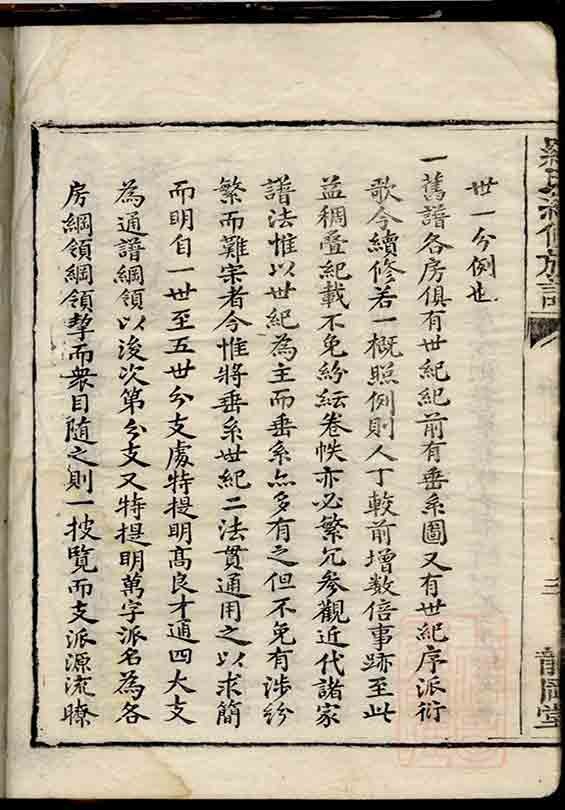 世一分例也
一舊譜各房俱有世紀紀前有垂系圖又有世紀序派衍
歌今續修若一概照例則人丁較前增数倍事跡至此
益稠疊紀載不免紛紜卷帙亦必繁冗參觀近代諸家
譜法惟以世紀為主而垂系亦多有之但不免有涉紛
繁而難宗者今惟將垂系世紀二法貫通用之以求簡
而明自一世至五世分支處特提明高良才通四大支
為通譜綱領以後次第分支又特提明萬字派名為各
房綱領綱領挈而衆目随之則一披覽而支派源流瞭
氏續修族譜
三
龍岡堂